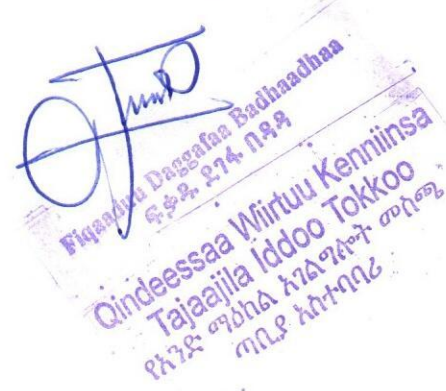 Fiqaaduu Daggafaa Badhaadhaa
ፍቃዱ ደገፋ በዳዳ
Qindeessaa Wiirtuu Kenniinsa
Tajaajila Iddoo Tokkoo
የአንድ ማዕከል አገልግሎት መስጫ
ጣቢያ አስተባባሪ